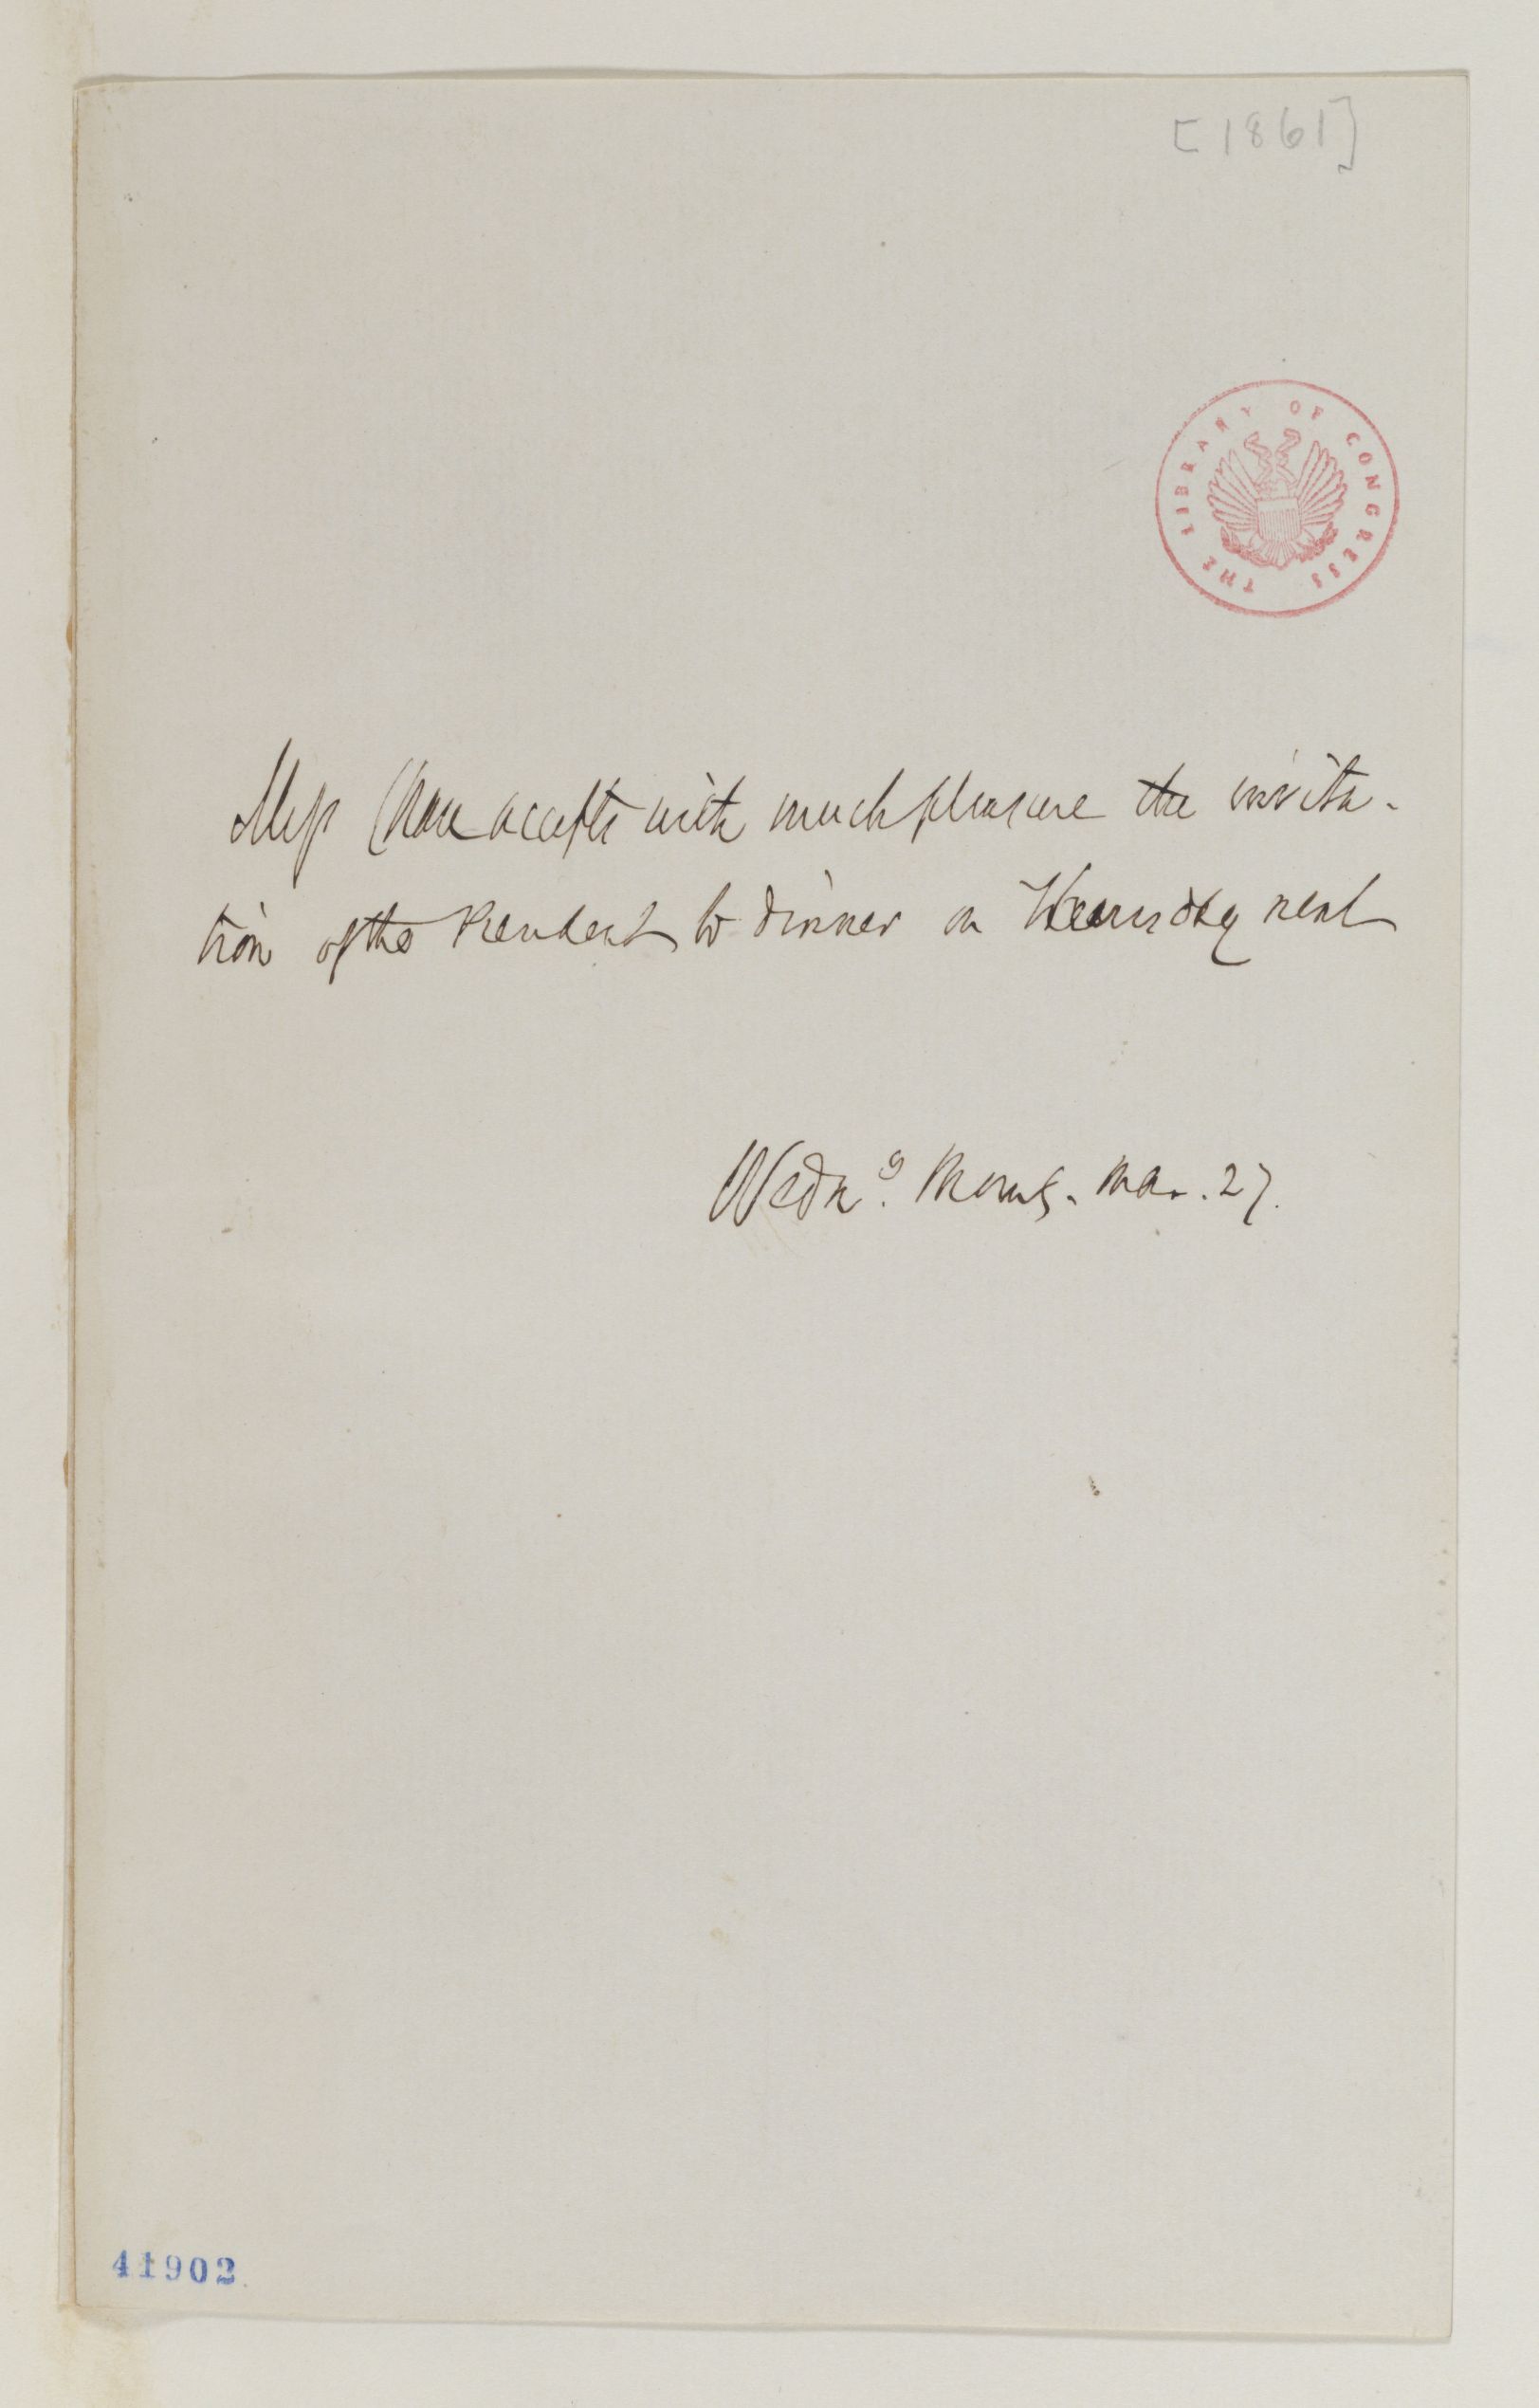 [1861]
THE LIBRARY OF CONGRESS
Miss Chase accepts with much pleasure the invita-
tion of the President to dinner on Thursday next
Wedny. Morng. Mar. 27.
41902